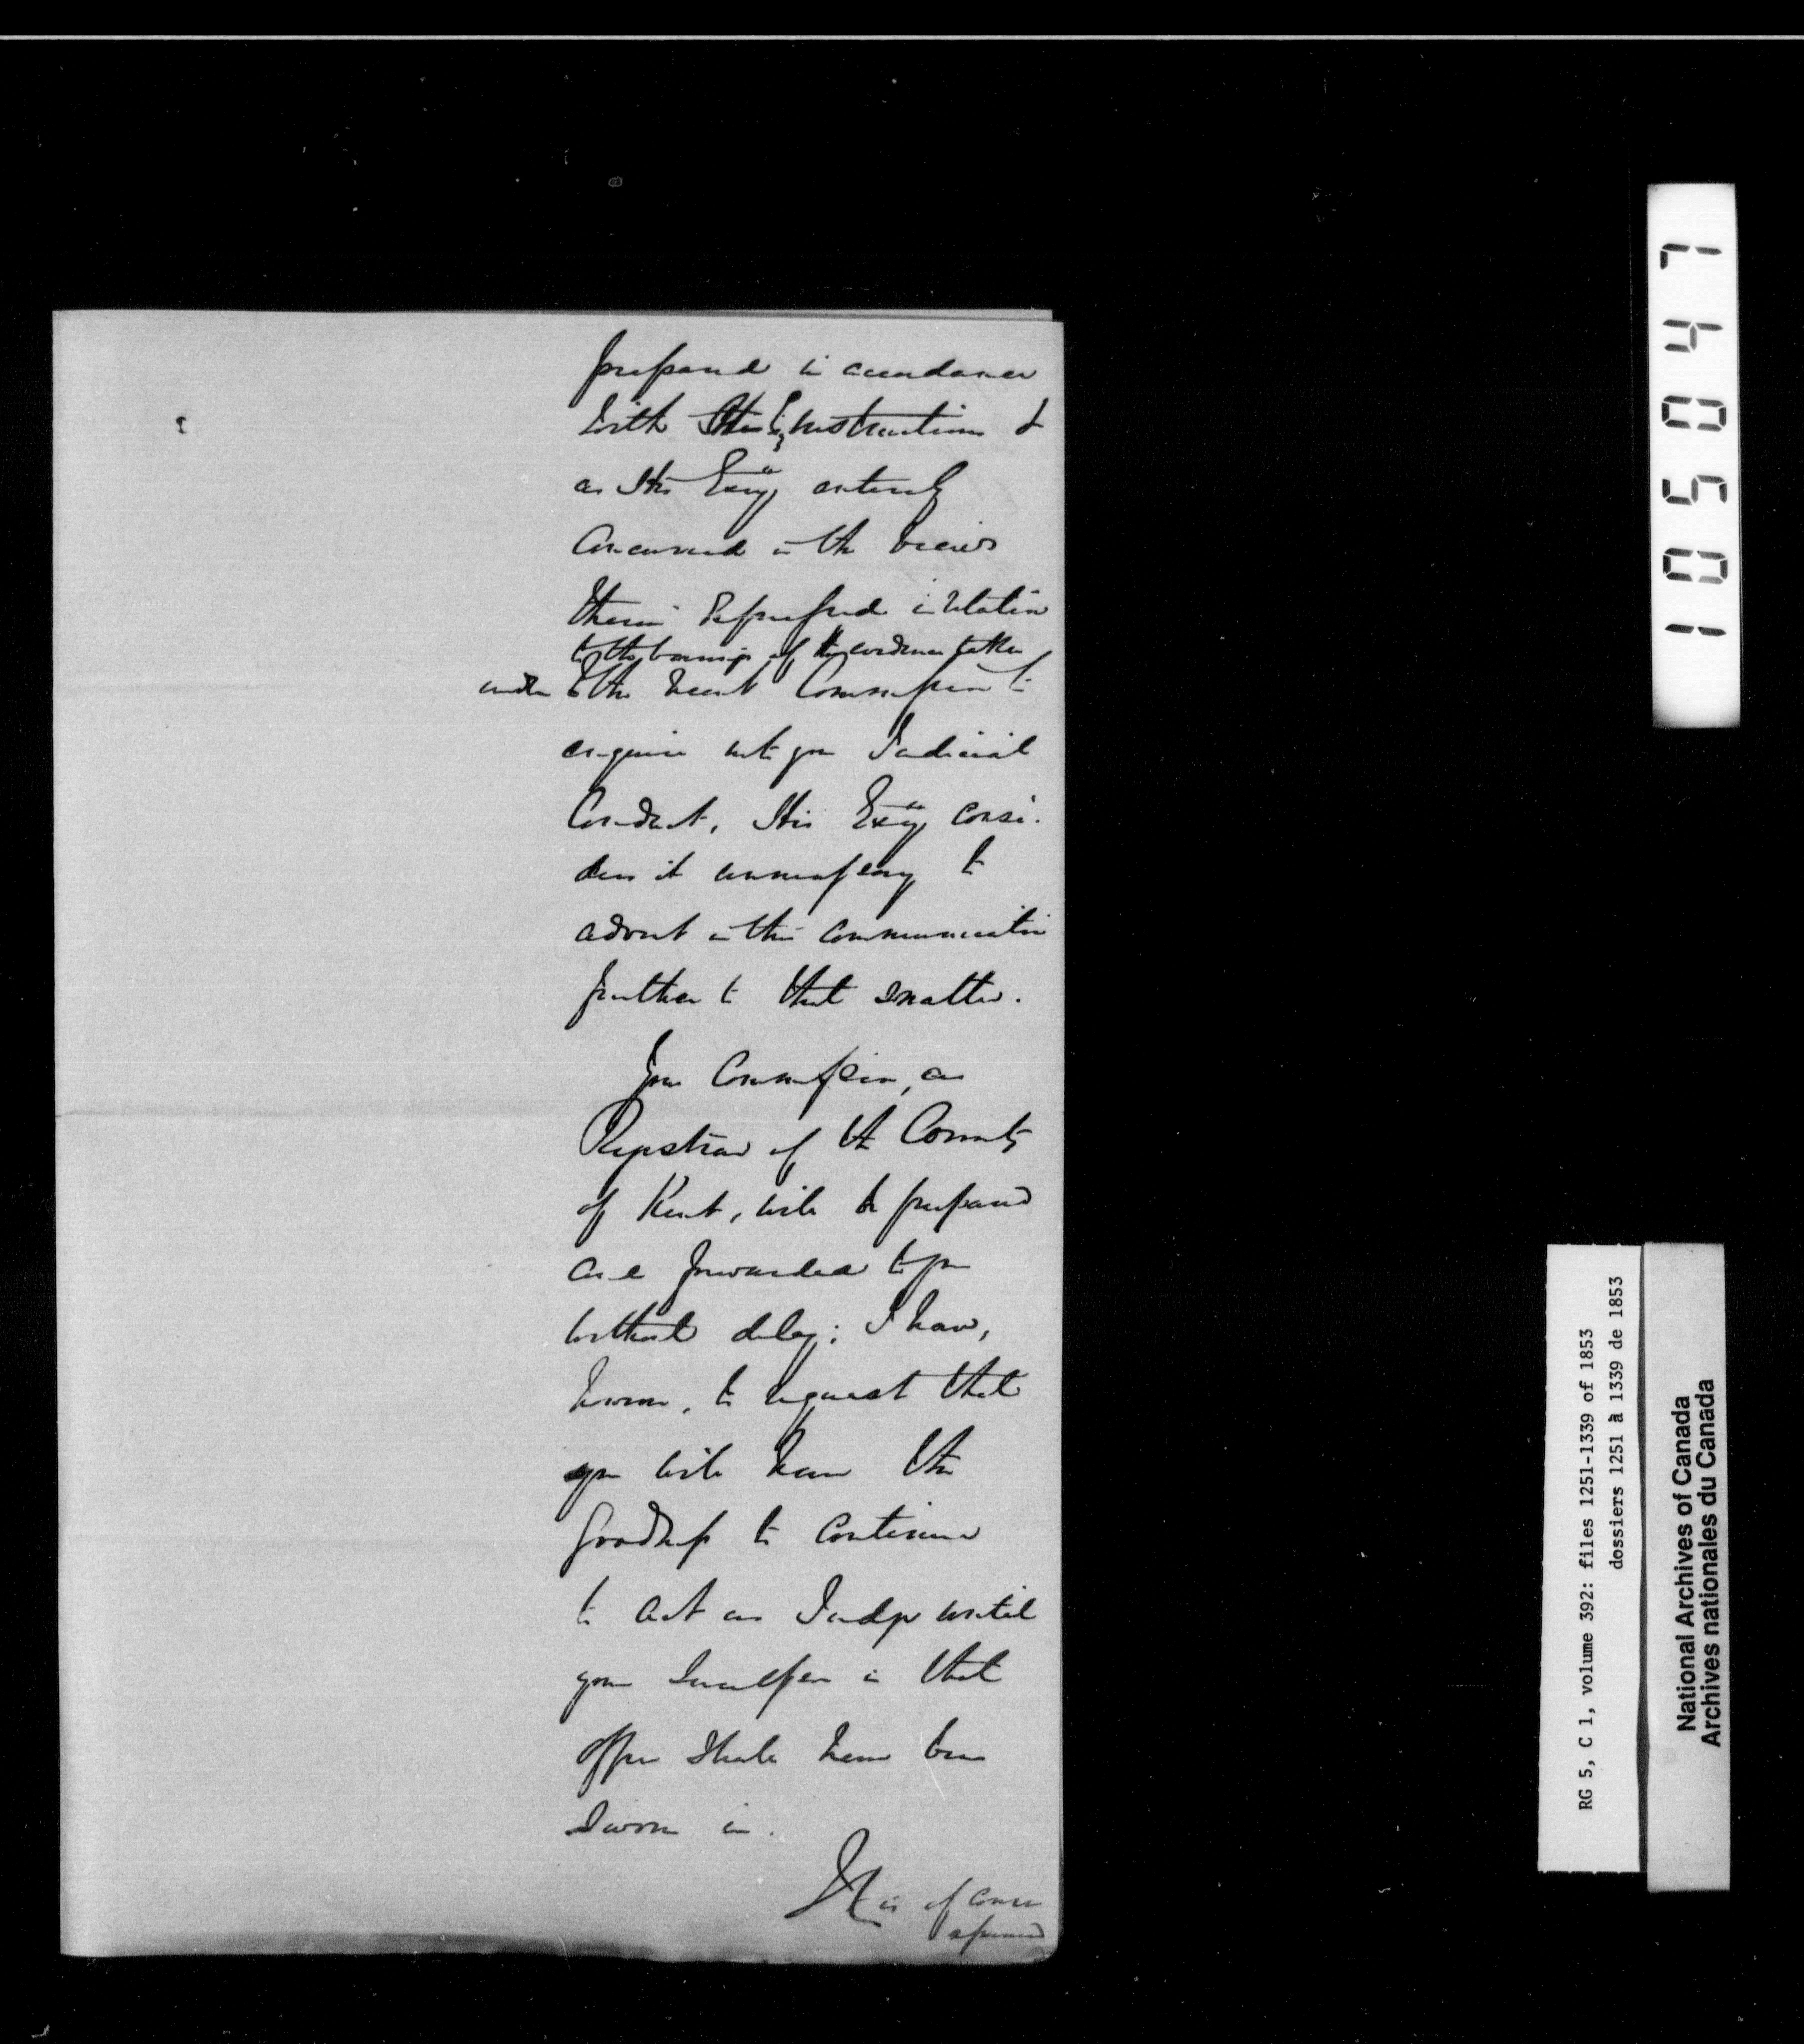 prepared in accordance
with His instructions &
as His Exy entirely
concurred in the views
therein expressed in relation
to the bearing of the evidence taken
under the recent Commission to
enquire into your Judicial
Conduct, His Exy consi-
ders it unnecessary to
advert in this communication
further to that matter.
Your Commission, as
Registrar of the County
of Kent, will be prepared
and forwarded to you
without delay; I have,
however, to request that
you will have the
goodness to continue
to act as Judge until
your Successor in that
office shall have been
sworn in.
It is of course
assumed
105047
RG 5, C 1, volume 392: files 1251-1339 of 1853
dossiers 1251 à 1339 de 1853
National Archives of Canada
Archives nationales du Canada